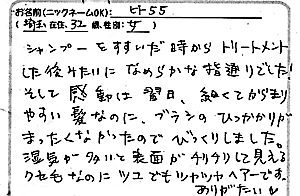 お名前(ニックネームOK): ﾋﾄ55
(埼玉在住、32歳、性別:女)
シャンプーをすすいだ時からトリートメント
した後みたいになめらかな指通りでした!
そして感動は翌日、細くてからまり
やすい髪なのに、ブラシのひっかかりが
まったくなかったのでびっくりしました。
湿気が多いと表面がチリチリして見える
クセ毛なのにツユでもツヤツヤヘアーです。
ありがたい